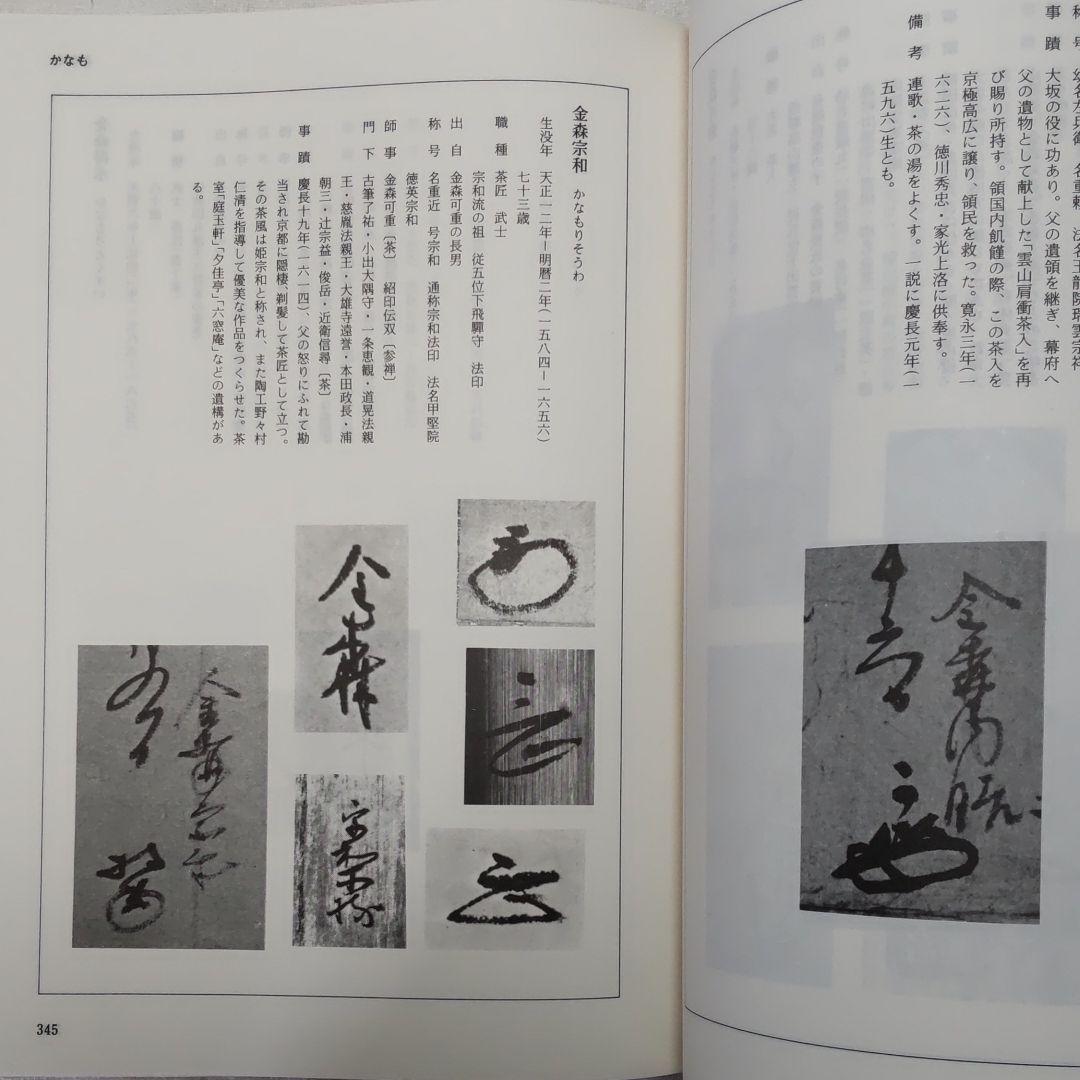 かなも
金森宗和 かなもりそうわ
生没年 天正一二年―明暦二年(一五八四―一六五六)
七十三歳
職種 茶匠 武士
宗和流の祖 従五位下飛驒守 法印
出自 金森可重の長男
称号 名重近 号宗和 通称宗和法印 法名甲堅院
徳英宗和
師事 金森可重〔茶〕 紹印伝双〔参禅〕
門下 古筆了祐・小出大隅守・一条恵観・道晃法親
王・慈胤法親王・大雄寺遠誉・本田政長・浦
朝三・辻宗益・俊岳・近衛信尋〔茶〕
事蹟 慶長十九年(一六一四)、父の怒りにふれて勘
当され京都に隠棲、剃髪して茶匠として立つ。
その茶風は姫宗和と称され、また陶工野々村
仁清を指導して優美な作品をつくらせた。茶
室「庭玉軒」「夕佳亭」「六窓庵」などの遺構があ
る。
345
称号 幼名左兵衛 名重頼 法名玉龍院瑞雲宗祥
事蹟 大坂の役に功あり。父の遺領を継ぎ、幕府へ
父の遺物として献上した「雲山肩衝茶入」を再
び賜り所持す。領国内飢饉の際、この茶入を
京極高広に譲り、領民を救った。寛永三年(一
六二六)、徳川秀忠・家光上洛に供奉す。
備考 連歌・茶の湯をよくす。一説に慶長元年(一
五九六)生とも。